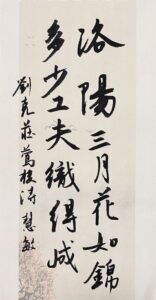 洛陽三月花如錦
多少工夫織得成
劉克莊鶯梭詩 慧敏